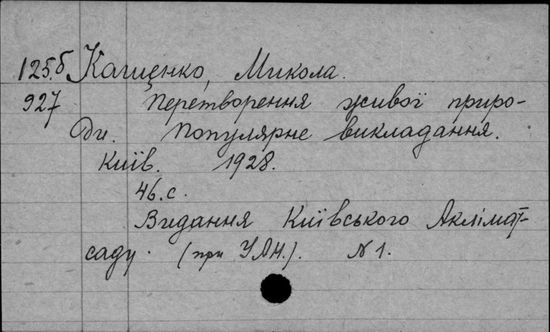 125.б Кащенко, Микола.
927 Перетворення живої приро-
ди. Популярне викладання.
Київ. 1928.
46.с.
Видання Київського Аклімат.
саду. (при УАН.). N1.